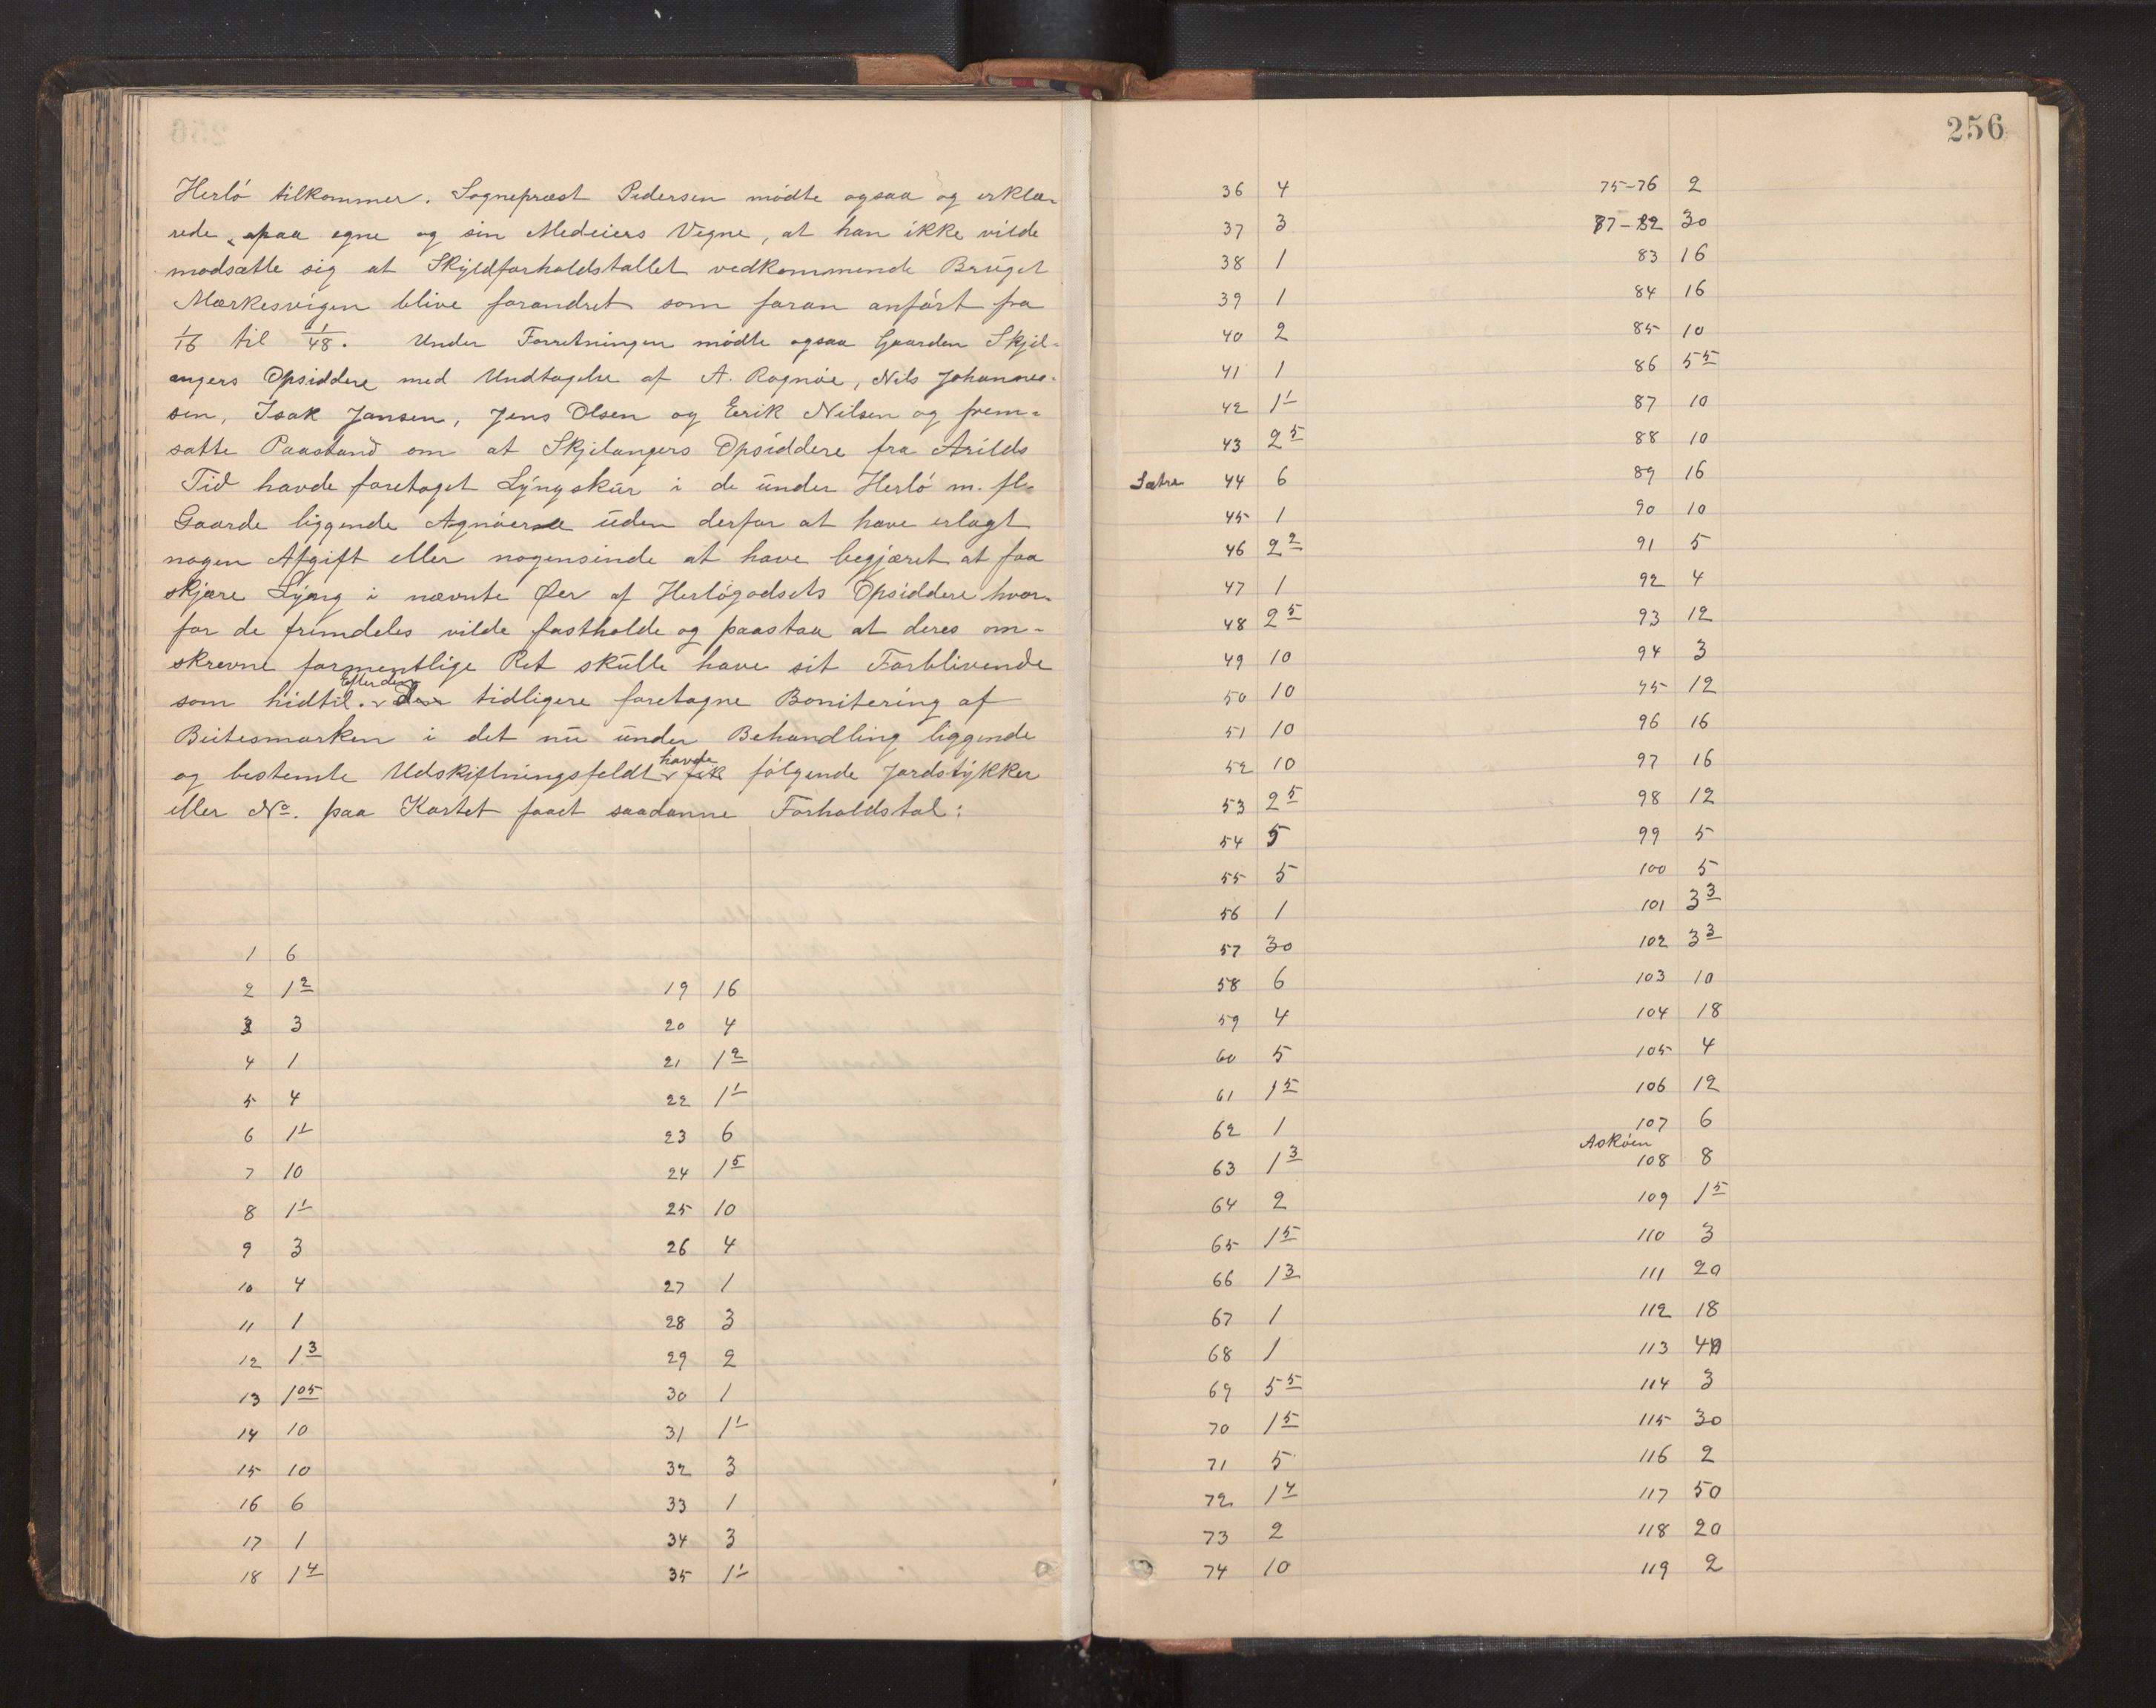 Herlö tilkommer. Sognepræst Pedersen mödte ogsaa og erklæ-
rede, paa egne og sin Medeiers Vegne, at han ikke vilde
modsætte sig at Skyldforholdstallet vedkommende Bruget
Mærkesvigen blive forandret som foran anfört fra
1/16 til 1/48. Under Forretningen mödte ogsaa Gaarden Skjel-
angers Opsiddere med Undtagelse af A. Rognöe, Nils Johannes-
sen, Isak Jansen, Jens Olsen og Eerik Nilsen og frem-
satte Paastand om at Skjelangers Opsiddere fra Arilds
Tid havde foretaget Lyngskur i de under Herlö m. fl.
Gaarde liggende Agnöerne uden derfor at have erlagt
nogen Afgift eller nogensinde at have begjæret at faa
skjære Lyng i nævnte Øer af Herlögodsets Opsiddere hvor-
for de fremdeles vilde fastholde og paastaa at deres om-
skrevne formentlige Ret skulle have sit Forblivende
som hidtil. Efter den tidligere foretagne Bonitering af
Beitesmarken i det nu under Behandling liggende
og bestemte Udskiftningsfeldt havde fik følgende Jordstykker
eller No. paa Kartet faaet saadanne Forholdstal:
1 6
2 1 2
3 3
4 1
5 4
6 1 1
7 10
8 1 1
9 3
10 4
11 1
12 1 3
13 1 05
14 10
15 10
16 6
17 1
18 1 4
19 16
20 4
21 1 2
22 1 1
23 6
24 1 5
25 10
26 4
27 1
28 3
29 2
30 1
31 1 1
32 3
33 1
34 3
35 1 1
256
36 4
37 3
38 1
39 1
40 2
41 1
42 1 1
43 2 5
Sætre 44 6
45 1
46 2 2
47 1
48 2 5
49 10
50 10
51 10
52 10
53 2 5
54 5
55 5
56 1
57 30
58 6
59 4
60 5
61 1 5
62 1
63 1 3
64 2
65 1 5
66 1 3
67 1
68 1
69 5 5
70 1 5
71 5
72 1 4
73 2
74 10
75-76 2
77-82 30
83 16
84 16
85 10
86 5 5
87 10
88 10
89 16
90 10
91 5
92 4
93 12
94 3
95 12
96 16
97 16
98 12
99 5
100 5
101 3 3
102 3 3
103 10
104 18
105 4
106 12
107 6
Asköen
108 8
109 1 5
110 3
111 20
112 18
113 40
114 3
115 30
116 2
117 50
118 20
119 2